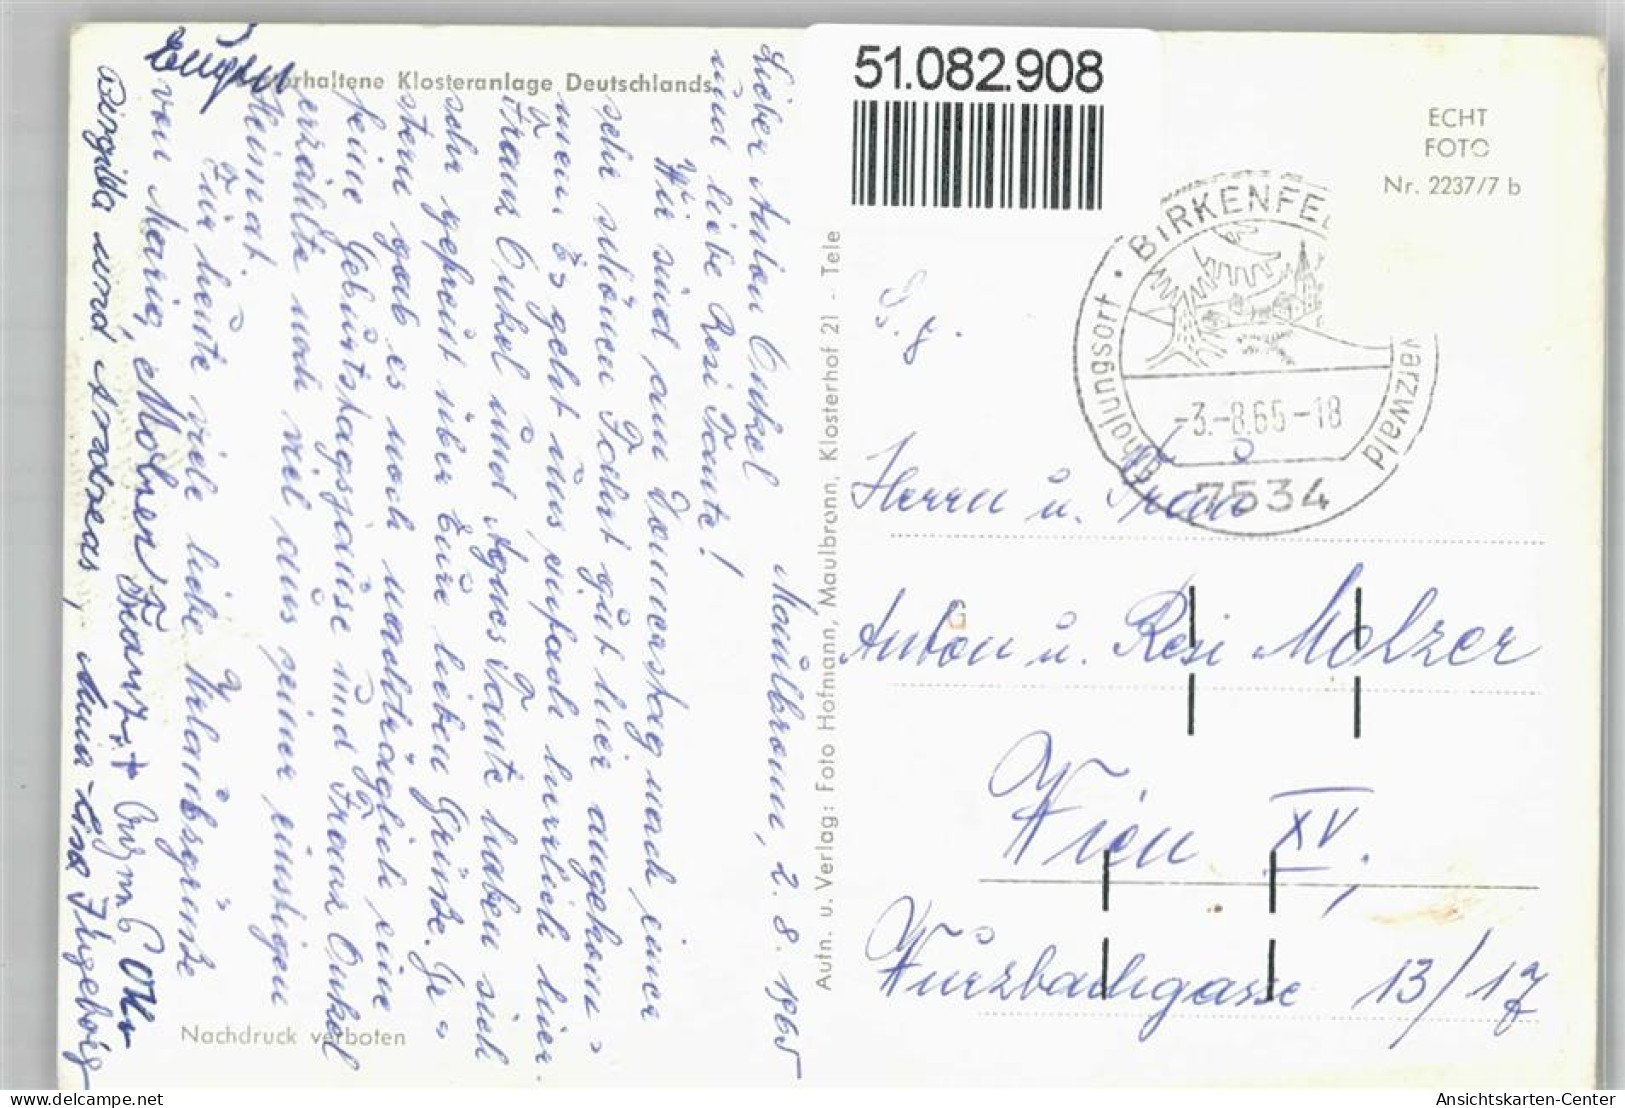 51.082.908
ECHT
FOTO
Nr. 2237/7 b
erhaltene Klosteranlage Deutschlands
Maulbronn, 2. 8. 1965
Lieber Anton Onkel
und liebe Resi Tante!
Wir sind am Donnerstag nach einer
sehr schönen Fahrt gut hier angekom=
men. Es geht uns einfach herrlich hier.
Franz Onkel und Agnes Tante haben sich
sehr gefreut über Eure lieben Grüße. Ge=
stern gab es noch nachträglich eine
feine Geburtstagsjause und Franz Onkel
erzählte noch viel aus seiner einstigen
Heimat.
Für heute viele liebe Urlaubsgrüße
von Maria, Franz +
Birgitta und Andreas, Anna-Lisa Ingeborg
Autn. u. Verlag: Foto Hofmann, Maulbronn, Klosterhof 21 - Tele
Nachdruck verboten
BIRKENFEL
Erholungsort
warzwald
-3.-8.65-18
7534
Herrn u. Frau
Anton u. Resi Molzer
Wien XV,
Wurzbachgasse 13/17
delcampe.net
Ansichtskarten-Center